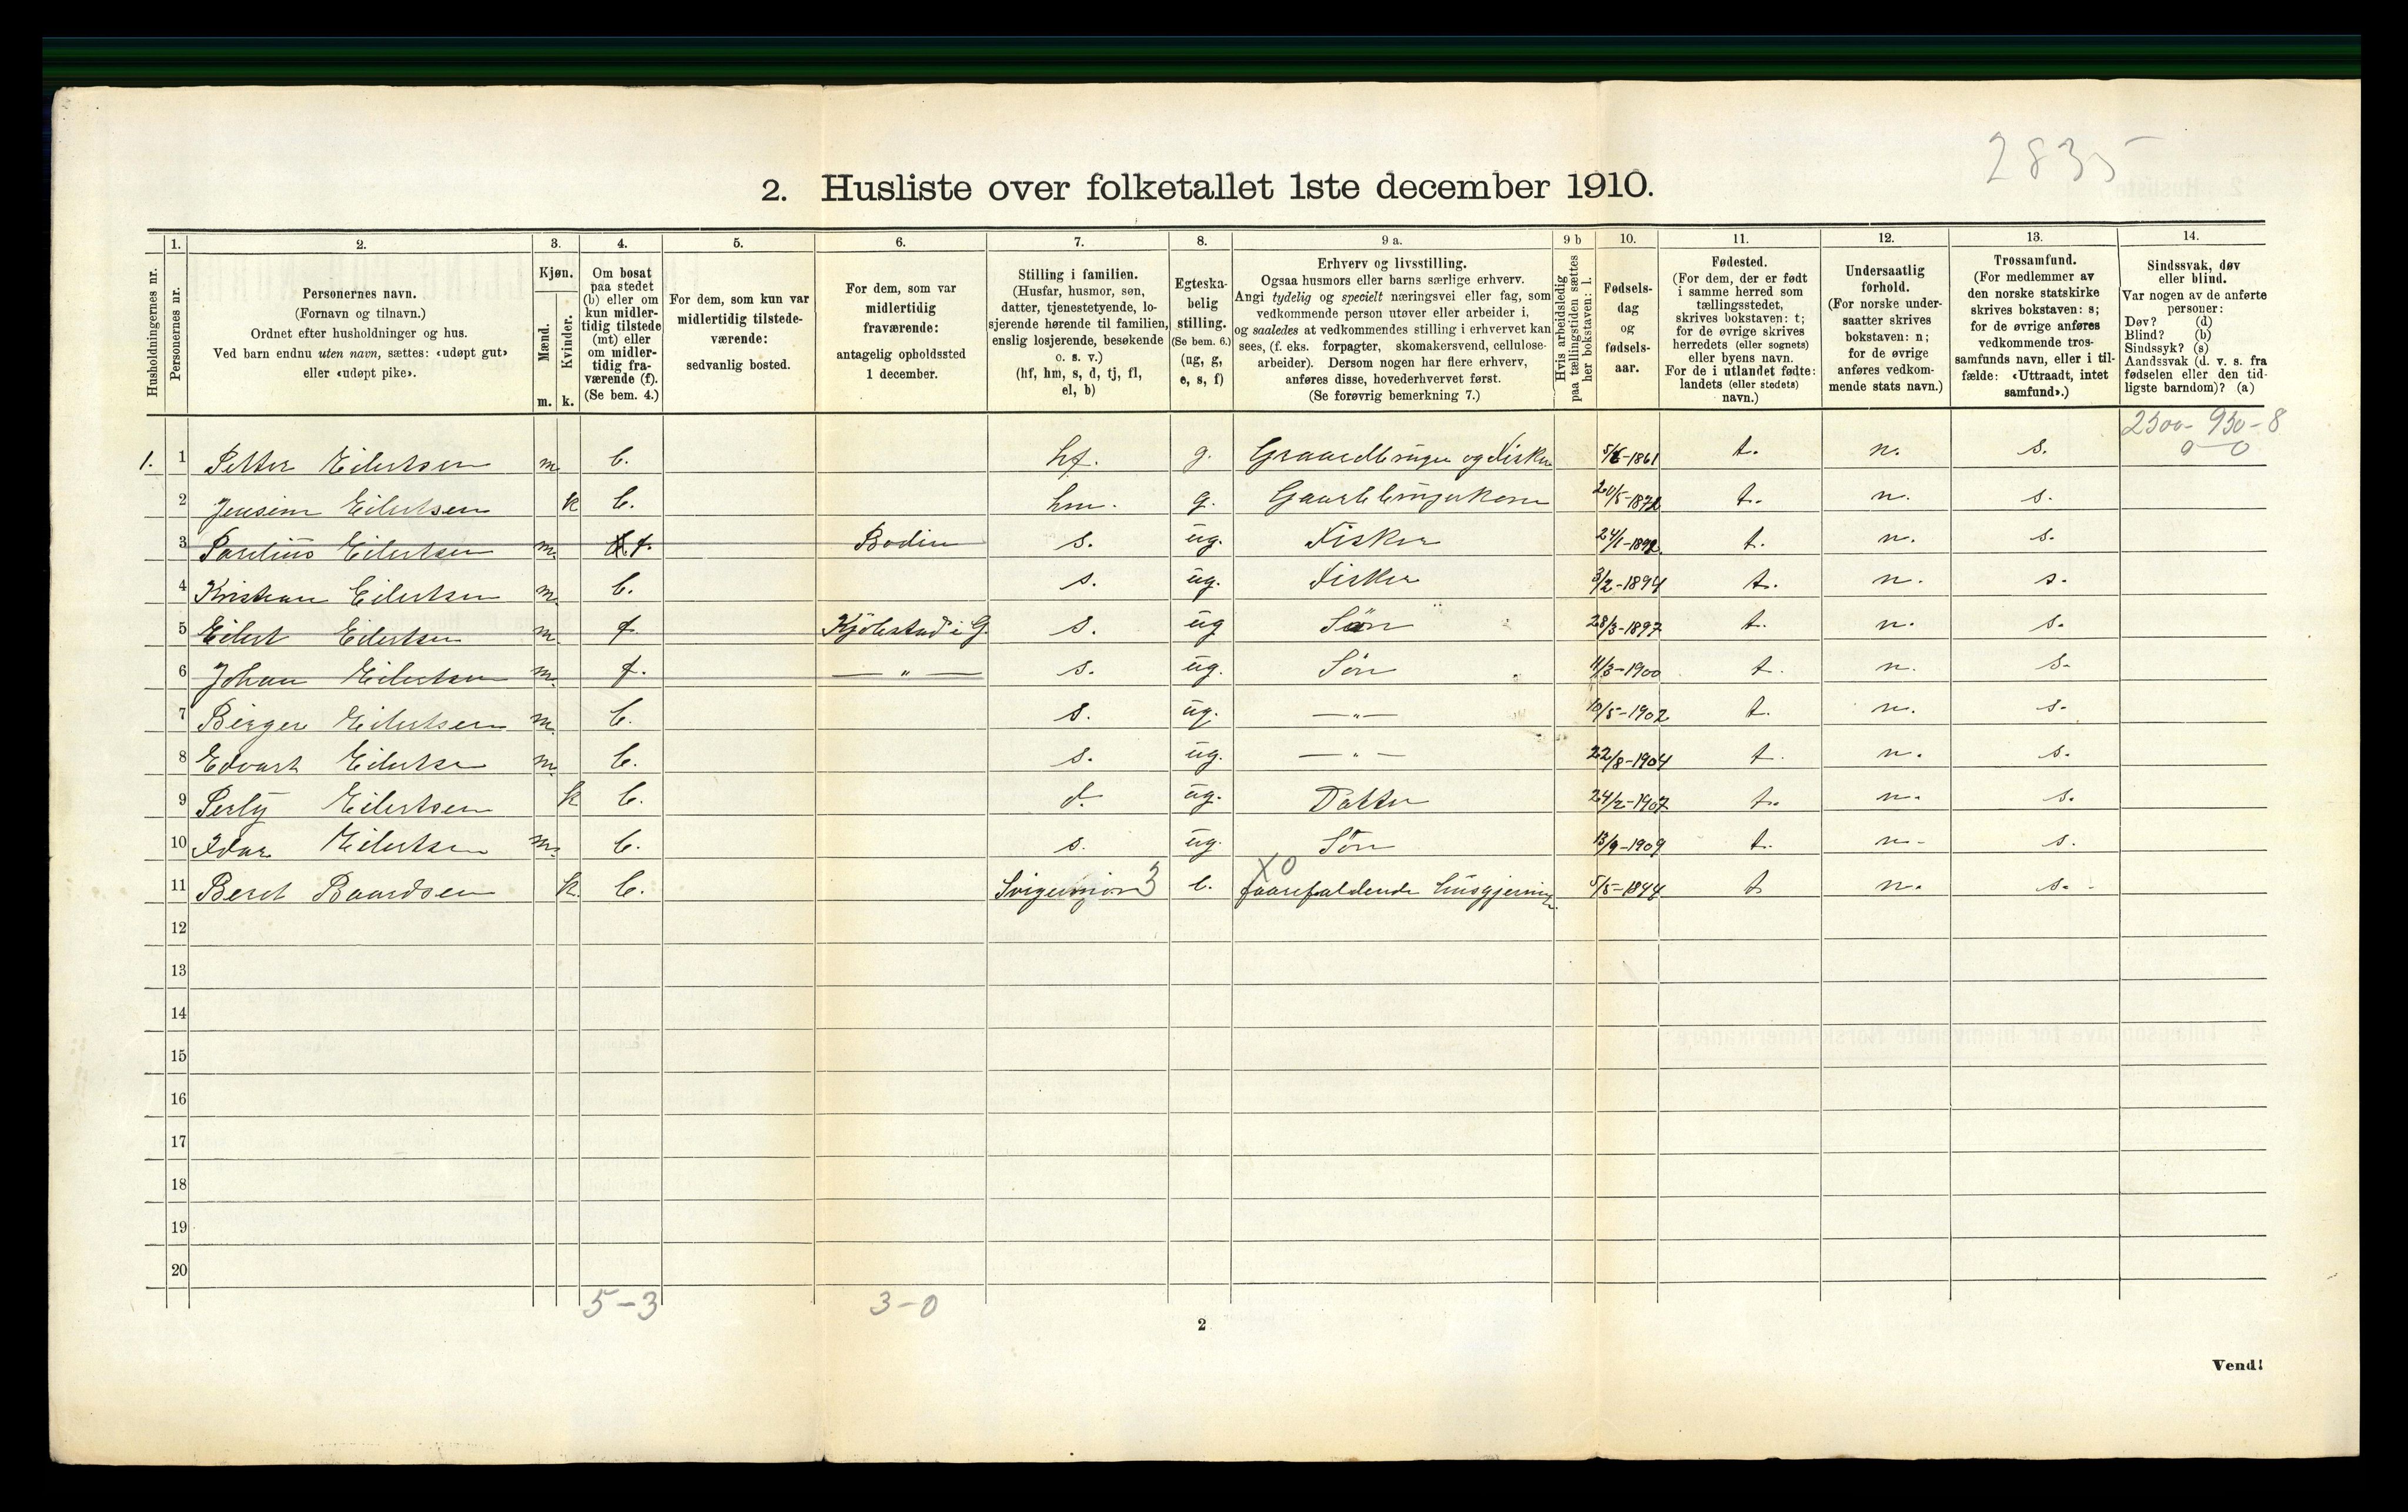 2835
2. Husliste over folketallet 1ste december 1910.
Husholdningernes nr.
1.
Personernes nr.
2.
Personernes navn.
(Fornavn og tilnavn.)
Ordnet efter husholdninger og hus.
Ved barn endnu uten navn, sættes: «udøpt gut»
eller «udøpt pike».
3.
Kjøn.
Mænd.
Kvinder.
m. k.
4.
Om bosat
paa stedet
(b) eller om
kun midler-
tidig tilstede
(mt) eller
om midler-
tidig fra-
værende (f).
(Se bem. 4.)
5.
For dem, som kun var
midlertidig tilstede-
værende:
sedvanlig bosted.
6.
For dem, som var
midlertidig
fraværende:
antagelig opholdssted
1 december.
7.
Stilling i familien.
(Husfar, husmor, søn,
datter, tjenestetyende, lo-
sjerende hørende til familien,
enslig losjerende, besøkende
o. s. v.)
(hf, hm, s, d, tj, fl,
el, b)
8.
Egteska-
belig
stilling.
(Se bem. 6.)
(ug, g,
e, s, f)
9 a.
Erhverv og livsstilling.
Ogsaa husmors eller barns særlige erhverv.
Angi tydelig og specielt næringsvei eller fag, som
vedkommende person utøver eller arbeider i,
og saaledes at vedkommendes stilling i erhvervet kan
sees, (f. eks. forpagter, skomakersvend, cellulose-
arbeider). Dersom nogen har flere erhverv,
anføres disse, hovederhvervet først.
(Se forøvrig bemerkning 7.)
9 b
Hvis arbeidsledig
paa tællingstiden sættes
her bokstaven: l.
10.
Fødsels-
dag
og
fødsels-
aar.
11.
Fødested.
(For dem, der er født
i samme herred som
tællingsstedet,
skrives bokstaven: t;
for de øvrige skrives
herredets (eller sognets)
eller byens navn.
For de i utlandet fødte:
landets (eller stedets)
navn.)
12.
Undersaatlig
forhold.
(For norske under-
saatter skrives
bokstaven: n;
for de øvrige
anføres vedkom-
mende stats navn.)
13.
Trossamfund.
(For medlemmer av
den norske statskirke
skrives bokstaven: s;
for de øvrige anføres
vedkommende tros-
samfunds navn, eller i til-
fælde: «Uttraadt, intet
samfund».)
14.
Sindssvak, døv
eller blind.
Var nogen av de anførte
personer:
Døv? (d)
Blind? (b)
Sindssyk? (s)
Aandssvak (d. v. s. fra
fødselen eller den tid-
ligste barndom)? (a)
2300 - 930 - 8
0 - 0
1. 1 Petter Eilertsen m. b. hf. g. Graardbruger og Fisker 1861 t. n. s.
2 Jensine Eilertsen k b. hm. g. Gaardbrugerkone 20/5-1872 t. n. s.
3 Eilertsen m. f. Bodin s. ug. Fisker 24/1-1892 t. n. s.
4 Kristian Eilertsen m. b. s. ug. Fisker 3/2-1894 t. n. s.
5 Eilert Eilertsen m. f Kjølestad i G. s. ug Søn 28/3-1897 t. n. s.
6 Johan Eilertsen m. f. — " — s. ug. Søn 11/3-1900 t. n. s.
7 Birger Eilertsen m. b. s. ug. — " — 10/5-1902 t. n. s.
8 Edvart Eilertsen m. b. s. ug. — " — 22/8-1904 t. n. s.
9 Perly Eilertsen k b. d. ug. Datter 24/2-1907 t. n. s.
10 Idar Eilertsen m. b. s. ug. Søn 13/9-1909 t. n. s.
XO
11 Beret Baardsen k. b. Svigermor 3 e. faarefaldende husgjerning 5/5-1844 t n. s.
12
13
14
15
16
17
18
19
20
5-3 3-0
2
Vend!